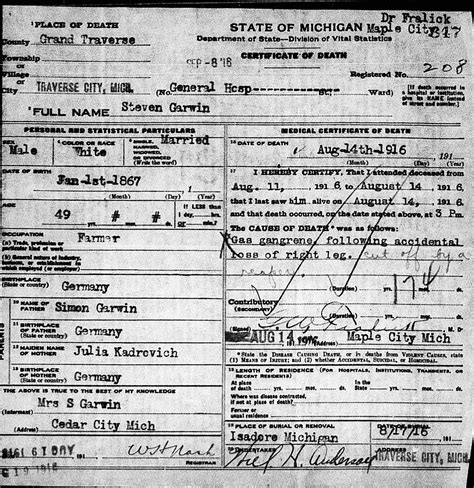 Dr Fralick
Maple City 317
STATE OF MICHIGAN
Department of State—Division of Vital Statistics
CERTIFICATE OF DEATH
PLACE OF DEATH
County Grand Traverse
Township
or
Village
or
City TRAVERSE CITY, MICH.
SEP -8 '16
Registered No. 208
No. General Hosp St. Ward)
[If death occurred in a hospital or institution, give its NAME instead of street and number.]
FULL NAME Steven Garwin
PERSONAL AND STATISTICAL PARTICULARS
SEX Male
COLOR OR RACE White
SINGLE, MARRIED, WIDOWED, OR DIVORCED (Write the word) Married
DATE OF BIRTH
Jan-1st-1867
(Month) (Day) (Year)
AGE
49 # #
yrs. mos. ds.
If LESS than 1 day, hrs. or min.
OCCUPATION
(a) Trade, profession or particular kind of work Farmer
(b) General nature of industry, business, or establishment in which employed (or employer)
BIRTHPLACE
(State or country) Germany
10 NAME OF FATHER Simon Garwin
11 BIRTHPLACE OF FATHER
(State or country) Germany
12 MAIDEN NAME OF MOTHER Julia Kadrovich
13 BIRTHPLACE OF MOTHER
(State or country) Germany
PARENTS
THE ABOVE IS TRUE TO THE BEST OF MY KNOWLEDGE
(Informant) Mrs S Garwin
(Address) Cedar City Mich
REGISTRAR
MEDICAL CERTIFICATE OF DEATH
16 DATE OF DEATH
Aug-14th-1916 191
(Month) (Day) (Year)
17 I HEREBY CERTIFY, That I attended deceased from
Aug. 11, 1916 to August 14, 1916
that I last saw him alive on August 14, 1916
and that death occurred, on the date stated above, at 3 Pm.
The CAUSE OF DEATH was as follows:
Gas gangrene following accidental
loss of right leg. cut off by a
reaper
(Duration) yrs. mos. ds.
174
Contributory
(SECONDARY)
(Duration) yrs. mos. ds.
(Signed) M. D.
AUG 14 1916 (Address) Maple City Mich
State the DISEASE CAUSING DEATH, or in deaths from VIOLENT CAUSES, state (1) MEANS OF INJURY; and (2) whether ACCIDENTAL, SUICIDAL, or HOMICIDAL.
18 LENGTH OF RESIDENCE (FOR HOSPITALS, INSTITUTIONS, TRANSIENTS, OR RECENT RESIDENTS)
At place of death yrs. mos. ds. In the State yrs. mos. ds.
Where was disease contracted, if not at place of death?
Former or usual residence
19 PLACE OF BURIAL OR REMOVAL
Isadore Michigan
8/17/16 191
20 UNDERTAKER
Anderson
(Address)
TRAVERSE CITY, MICH